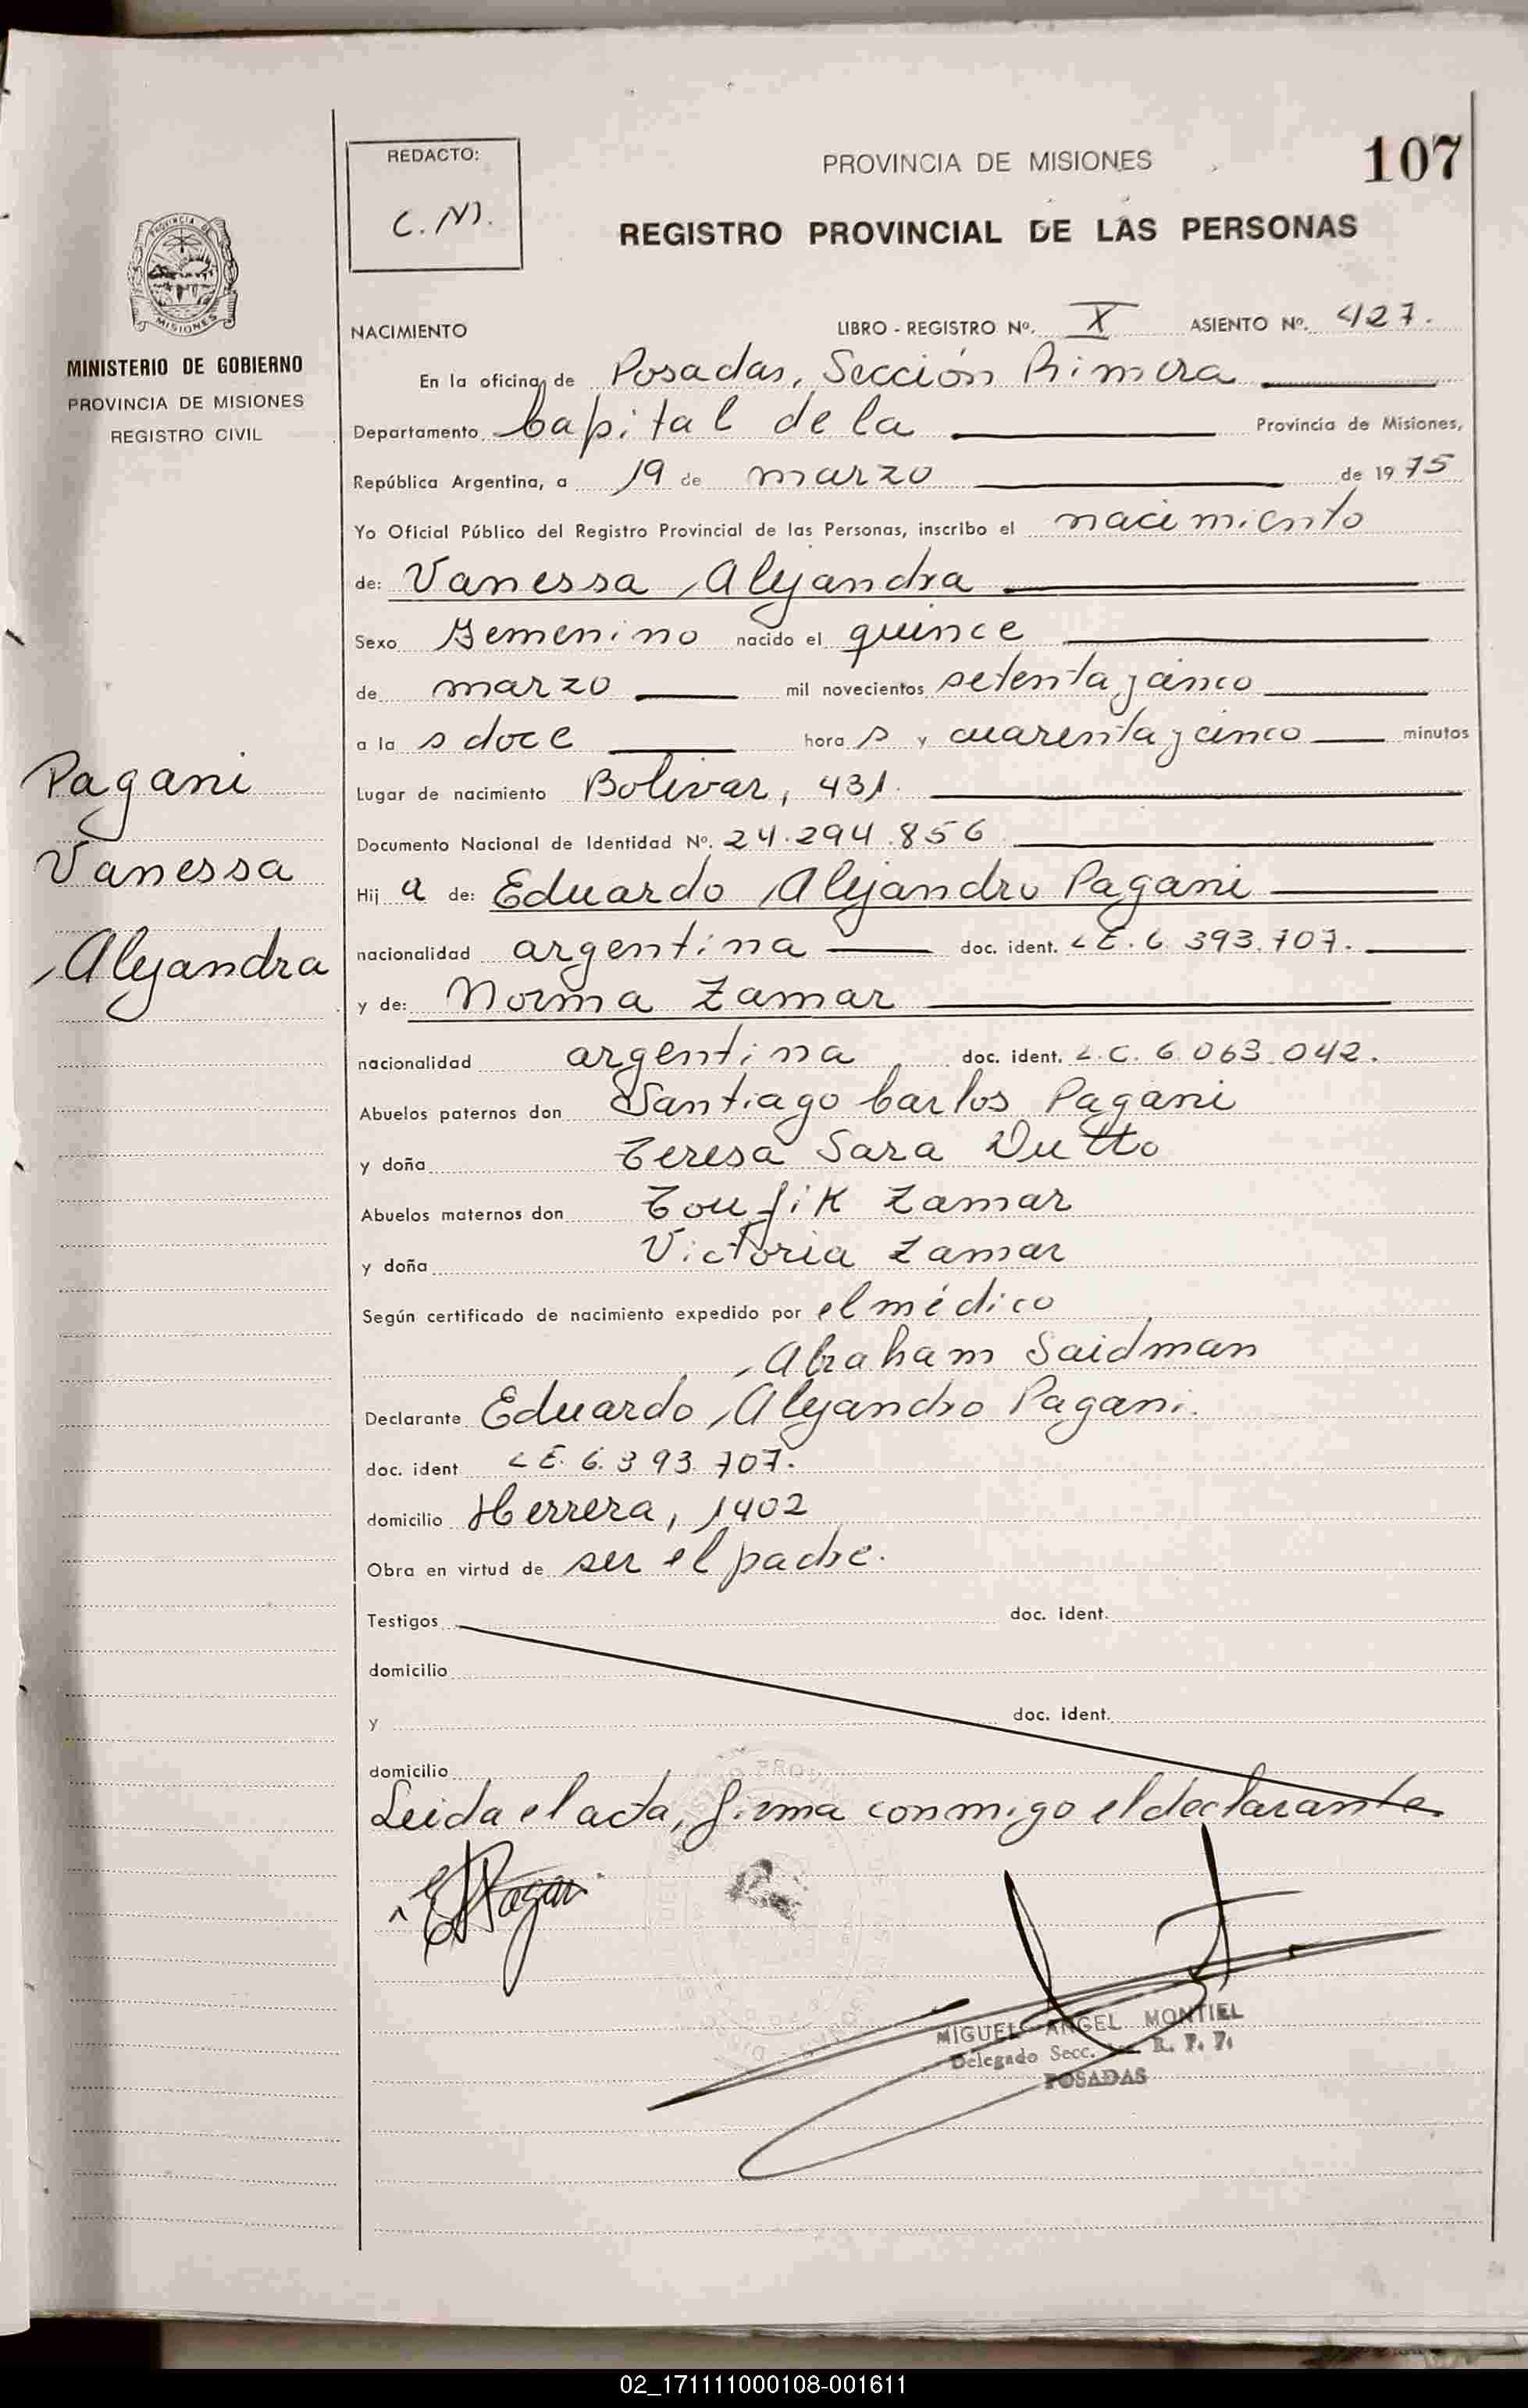 REDACTO:
C. M.
PROVINCIA DE MISIONES
107
REGISTRO PROVINCIAL DE LAS PERSONAS
PROVINCIA DE
MISIONES
MINISTERIO DE GOBIERNO
PROVINCIA DE MISIONES
REGISTRO CIVIL
Pagani
Vanessa
Alejandra
NACIMIENTO LIBRO - REGISTRO Nº. X ASIENTO Nº. 427.
En la oficina de Posadas, Sección Primera
Departamento Capital de la Provincia de Misiones,
República Argentina, a 19 de marzo de 1975
Yo Oficial Público del Registro Provincial de las Personas, inscribo el nacimiento
de: Vanessa Alejandra
Sexo Femenino nacido el quince
de marzo mil novecientos setenta y cinco
a la s doce hora s y cuarenta y cinco minutos
Lugar de nacimiento Bolivar, 431.
Documento Nacional de Identidad Nº. 24.294.856
Hij a de: Eduardo Alejandro Pagani
nacionalidad argentina doc. ident. L E. 6.393.707.
y de: Norma Zamar
nacionalidad argentina doc. ident. L.C. 6.063.042.
Abuelos paternos don Santiago Carlos Pagani
y doña Teresa Sara Dutto
Abuelos maternos don Toufik Zamar
y doña Victoria Zamar
Según certificado de nacimiento expedido por el médico
Abraham Saidman
Declarante Eduardo Alejandro Pagani.
doc. ident L E. 6.393.707.
domicilio Herrera, 1402
Obra en virtud de ser el padre.
Testigos doc. ident.
domicilio
y doc. ident.
domicilio
Leida el acta, firma conmigo el declarante.
MIGUEL ANGEL MONTIEL
Delegado Secc. R. P. P.
POSADAS
02_171111000108-001611